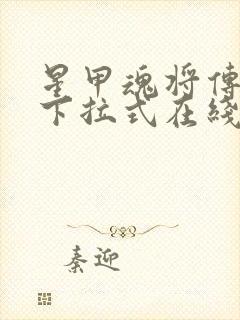 星甲魂将傳
下拉式在綫
秦迎